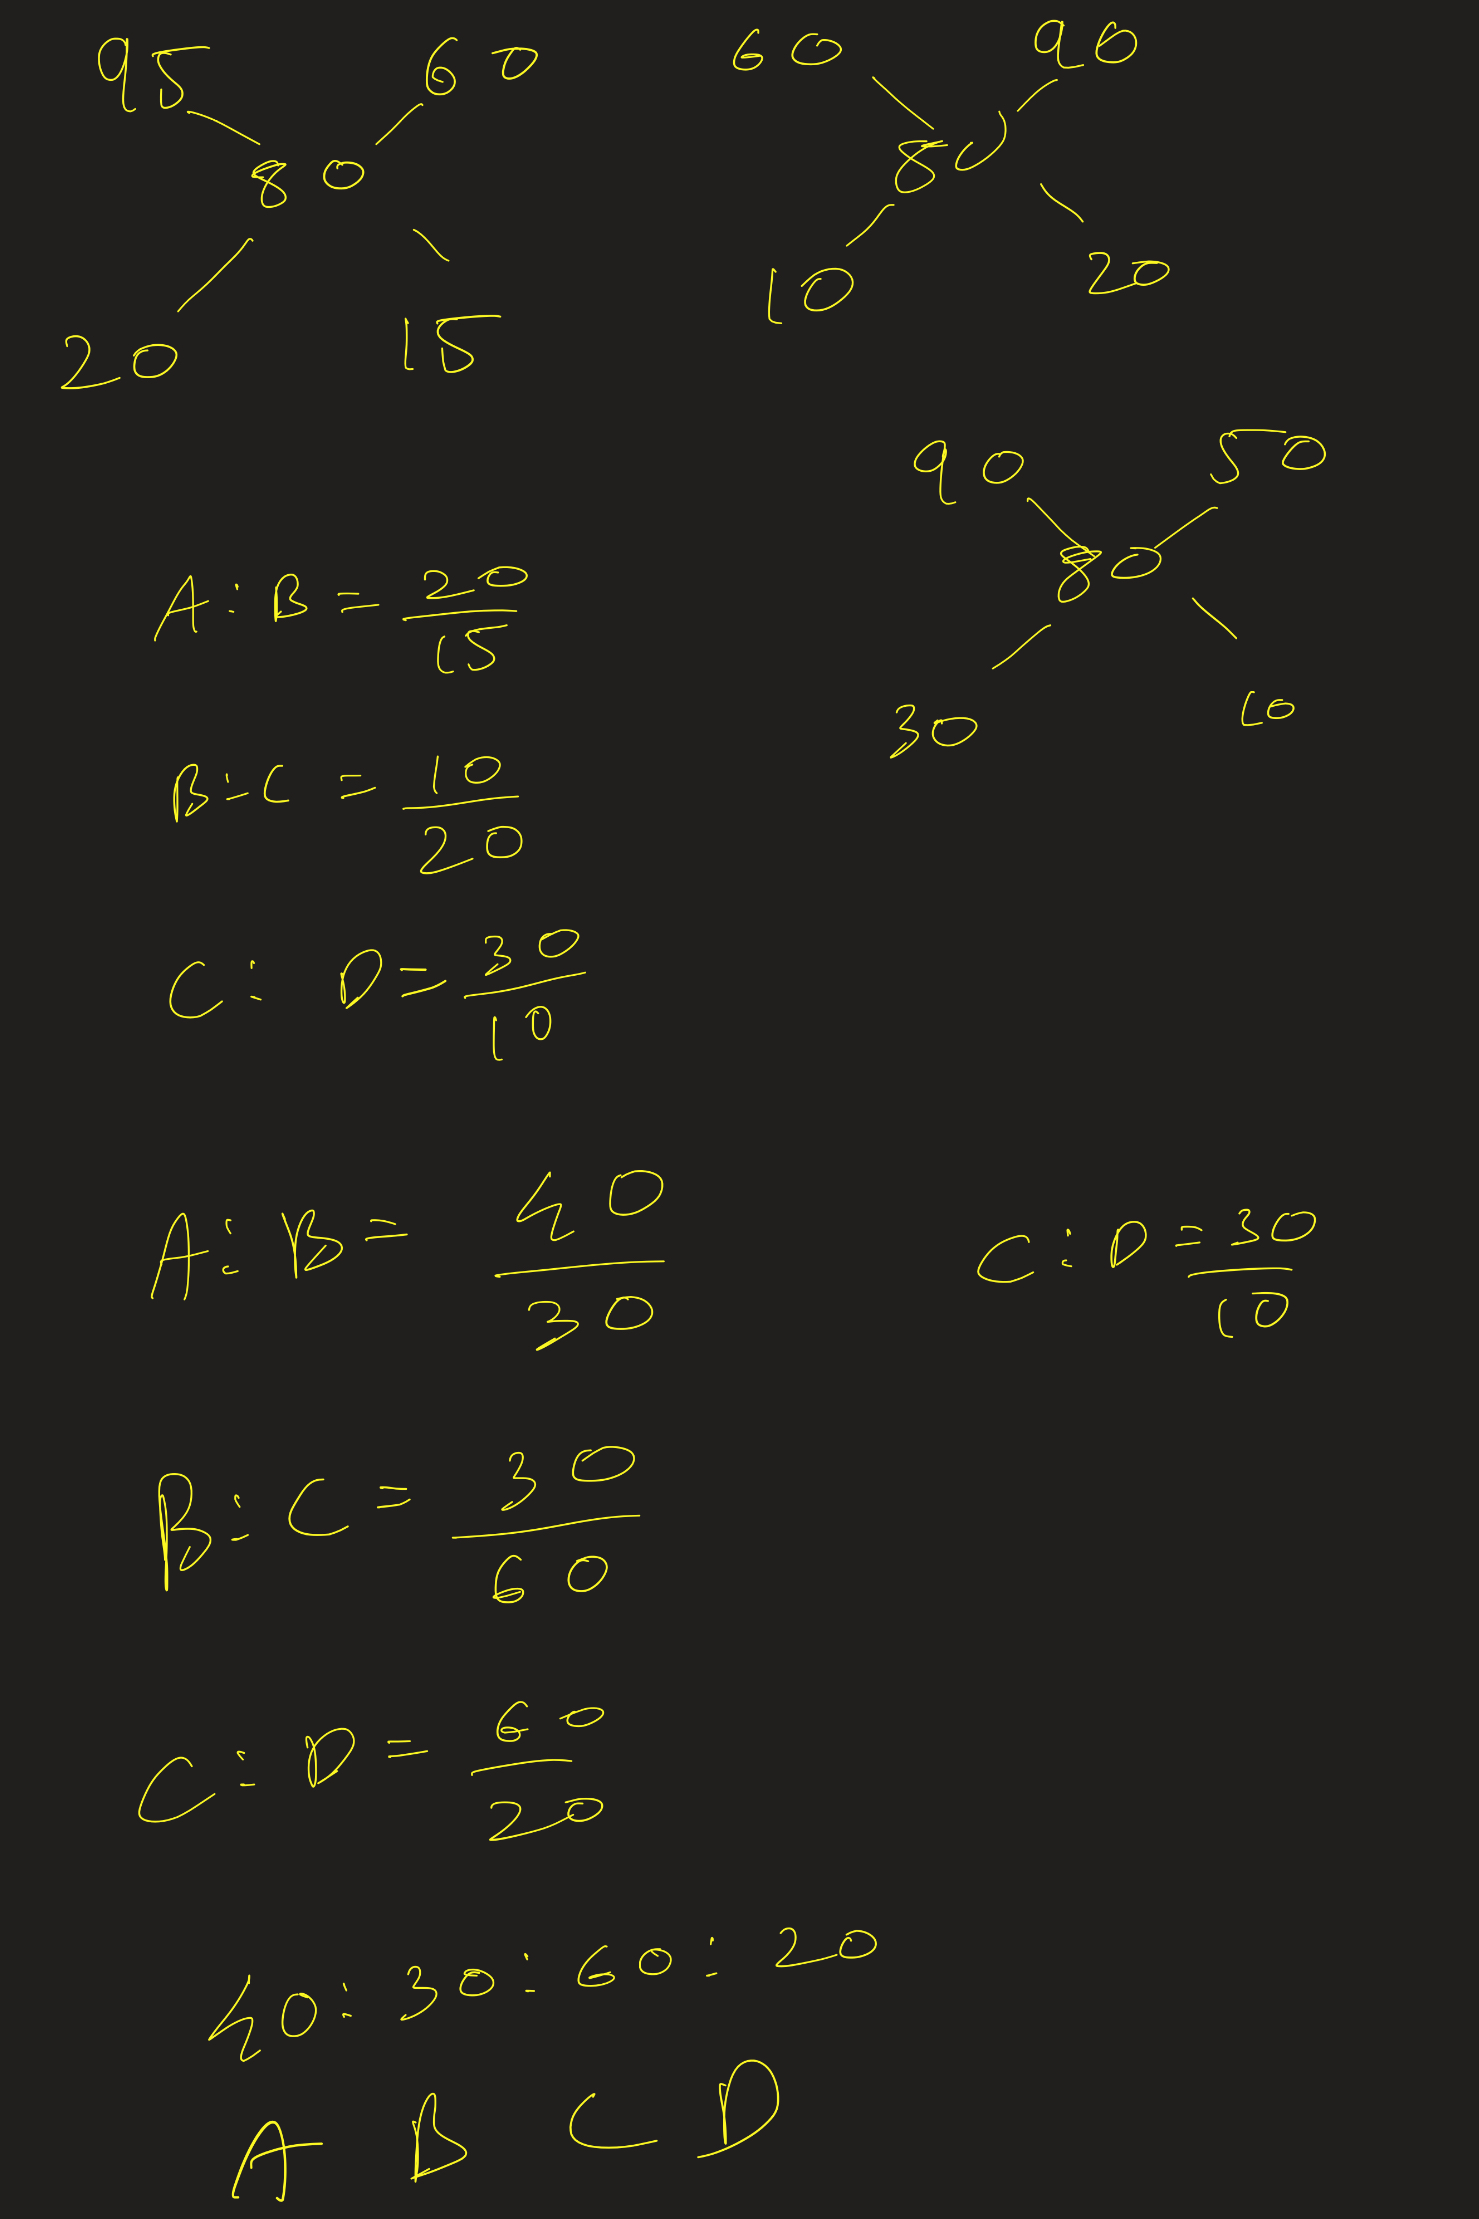 95 60
80
20 15
60 90
80
10 20
90 50
80
30 10
A : B = 20/15
B : C = 10/20
C : D = 30/10
A : B = 40/30
C : D = 30/10
B : C = 30/60
C : D = 60/20
40 : 30 : 60 : 20
A B C D